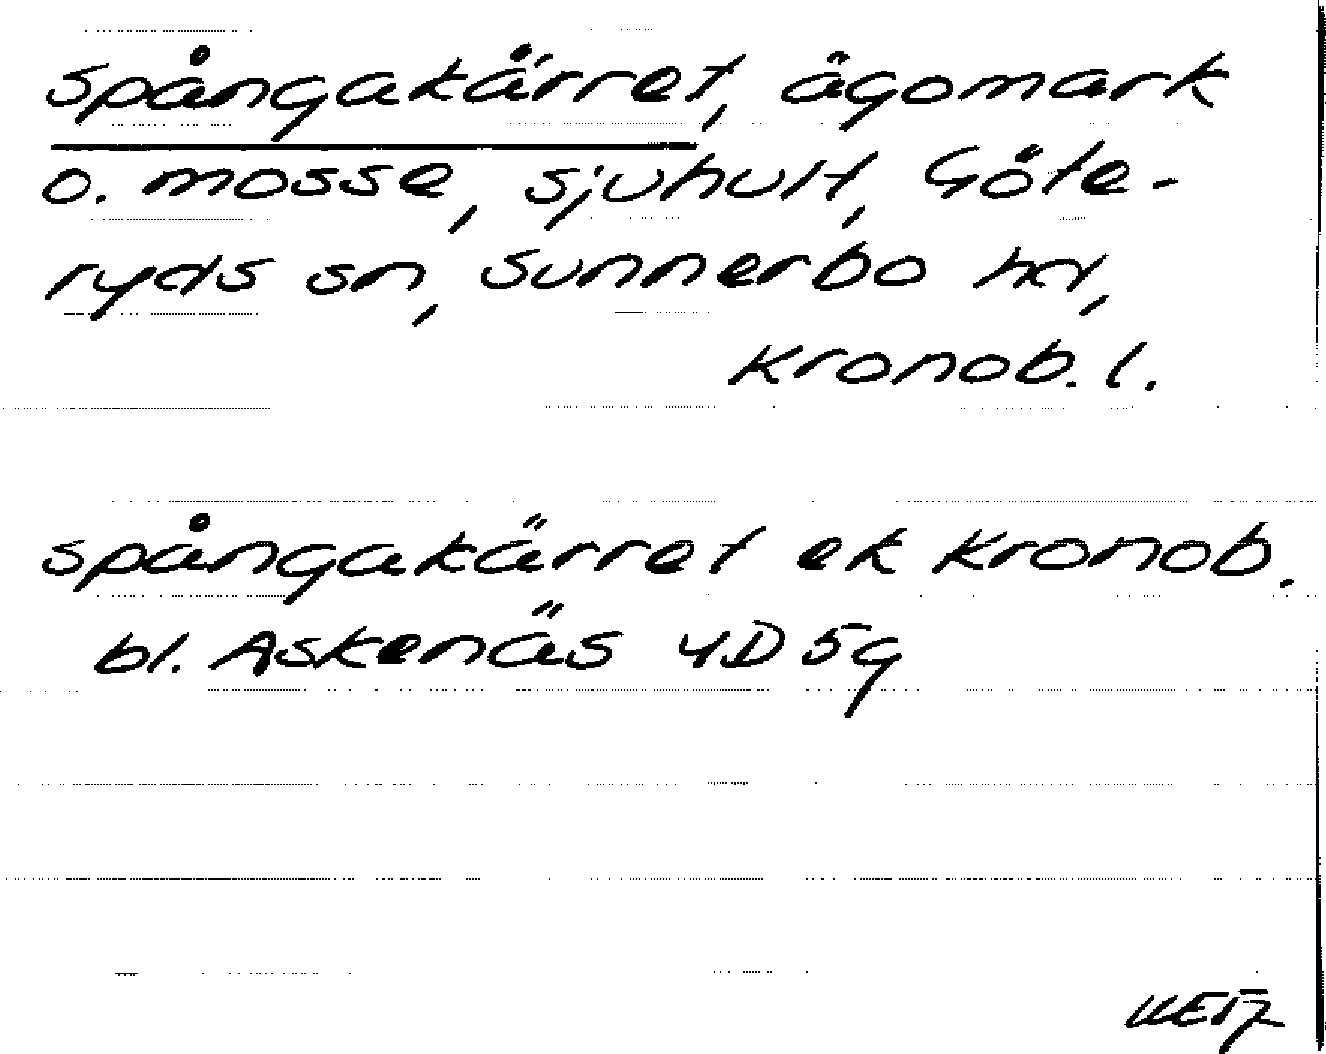 Spångakärret, ägomark
o. mosse, Sjuhult, Göte-
ryds sn, Sunnerbo hd,
Kronob. l.
Spångakärret ek Kronob.
bl. Askenäs 4D 5g